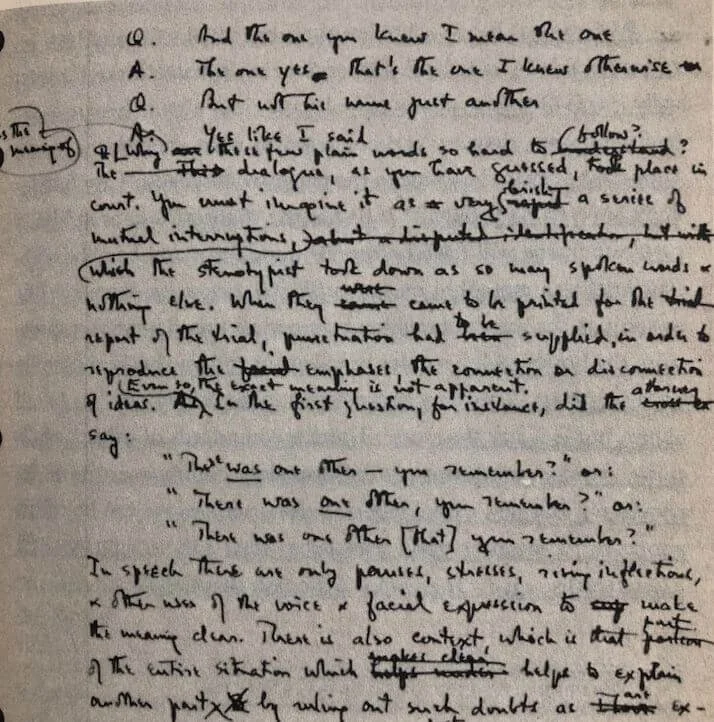 Q. And the one you knew I mean the one
A. The one yes. that's the one I knew otherwise
Q. But not his name just another
A. Yes like I said
is the meaning of
Why are these few plain words so hard to understand follow?
The This dialogue, as you have guessed, took place in
court. You must imagine it as a very rapid brisk, a series of
mutual interruptions, about a disputed identification, but with
which the stenotypist took down as so many spoken words &
nothing else. When they came were came to be printed for the trial
report of the trial, punctuation had been to be supplied, in order to
reproduce the facial emphases, the connection or disconnection
of ideas. Even so, the exact meaning is not apparent.
In the first question, for instance, did the cross ex attorney
say:
"There was one other — you remember?" or:
"There was one other, you remember?" or:
"There was one other [that] you remember?"
In speech there are only pauses, stresses, rising inflections,
& other uses of the voice & facial expression to make
the meaning clear. There is also context, which is that portion part
of the entire situation which helps makes clear helps to explain
another part & by ruling out such doubts as ex-